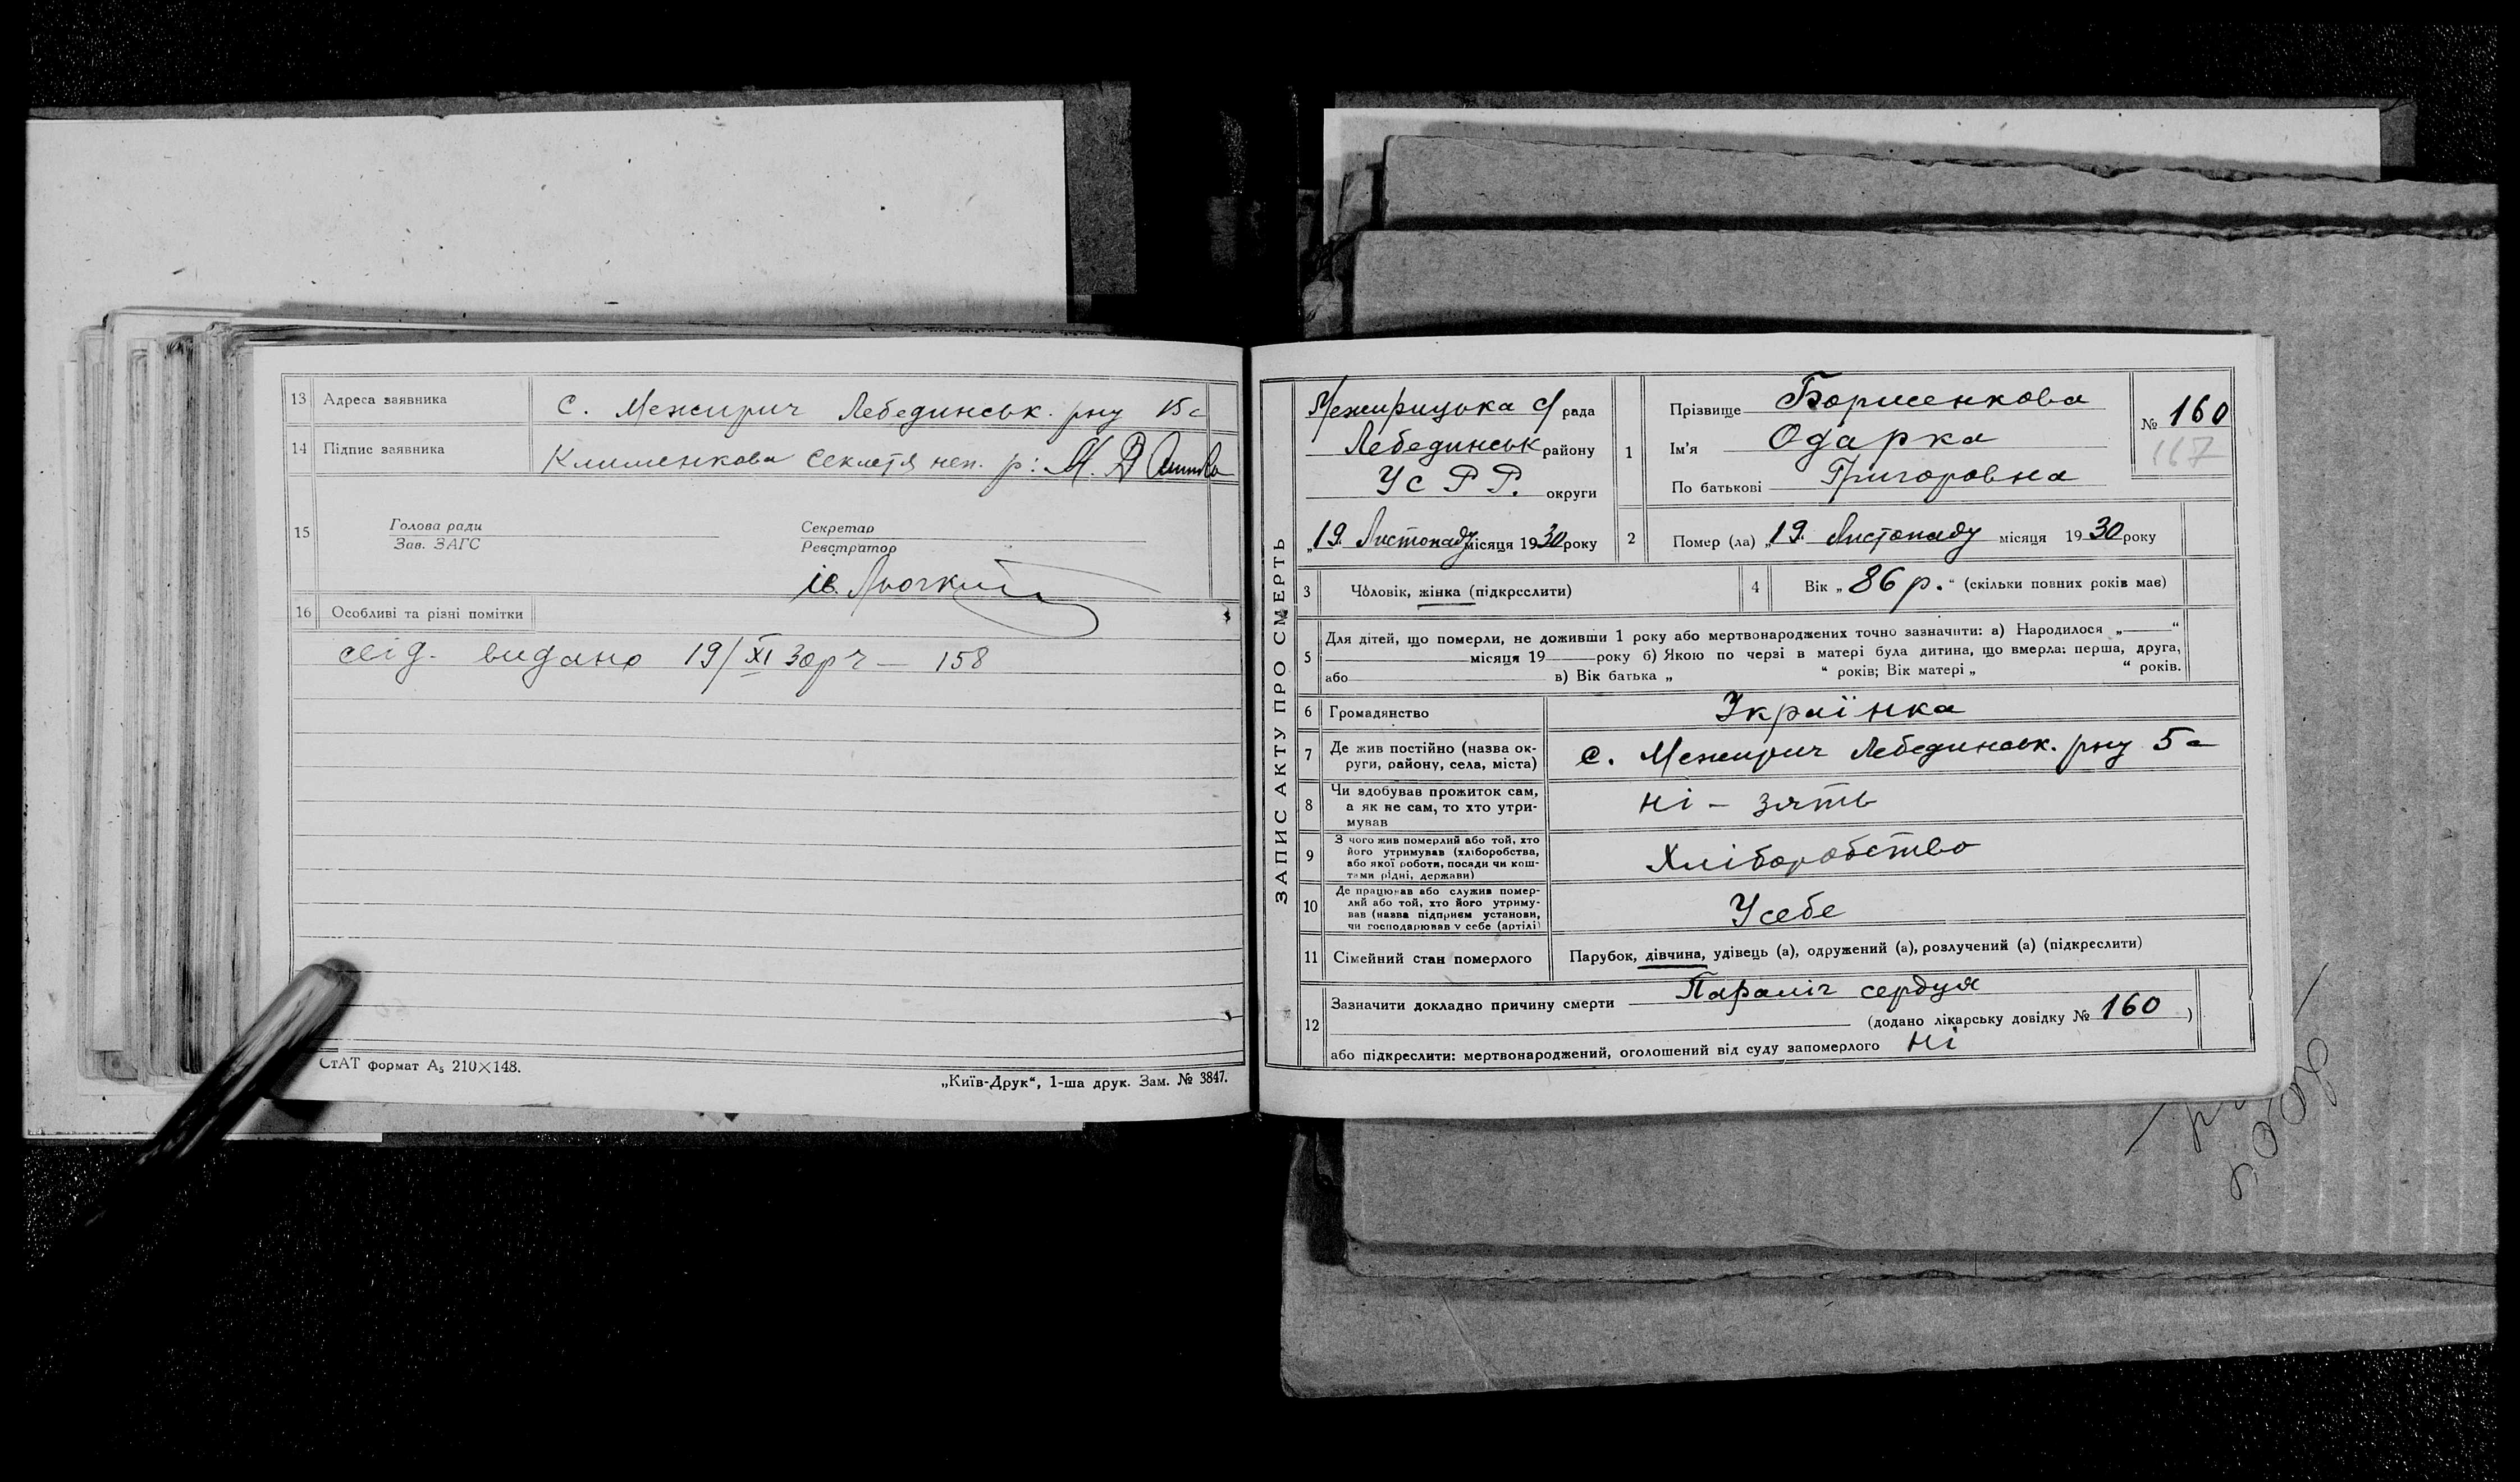 13 Адреса заявника С. Межирич Лебединськ. рну 15с
14 Підпис заявника Клименкова Секлетя неп. р: М. В
15 Голова ради Секретар
Зав. ЗАГС Реєстратор
ів.
16 Особливі та різні помітки
свід. видано 19/XI 30р ч — 158
СтАТ формат А₅ 210×148.
„Київ-Друк“, 1-ша друк. Зам. № 3847.
ЗАПИС АКТУ ПРО СМЕРТЬ
Межирицька с/ рада
Лебединськ району
УСРР. округи
„19. Листопаду місяця 1930 року
1 Прізвище Борисенкова
Ім'я Одарка
По батькові Григоровна
№ 160
167
2 Помер (ла) „19. Листопаду місяця 1930 року
3 Чоловік, жінка (підкреслити)
4 Вік „86 р.“ (скільки повних років має)
5 Для дітей, що померли, не доживши 1 року або мертвонароджених точно зазначити: а) Народилося „—“
місяця 19 року б) Якою по черзі в матері була дитина, що вмерла: перша, друга,
або в) Вік батька „ “ років; Вік матері „ “ років.
6 Громадянство Українка
7 Де жив постійно (назва ок-
руги, району, села, міста) с. Межирич Лебединськ. рну 5с
8 Чи здобував прожиток сам,
а як не сам, то хто утри-
мував ні – зять
9 З чого жив померлий або той, хто
його утримував (хліборобства,
або якої роботи, посади чи кош-
тами рідні, держави) Хліборобство
10 Де працював або служив помер-
лий або той, хто його утриму-
вав (назва підприєм установи,
чи господарював у себе (артілі) Усебе
11 Сімейний стан померлого Парубок, дівчина, удівець (а), одружений (а), розлучений (а) (підкреслити)
12 Зазначити докладно причину смерти Параліч сердця
(додано лікарську довідку № 160 )
або підкреслити: мертвонароджений, оголошений від суду запомерлого ні